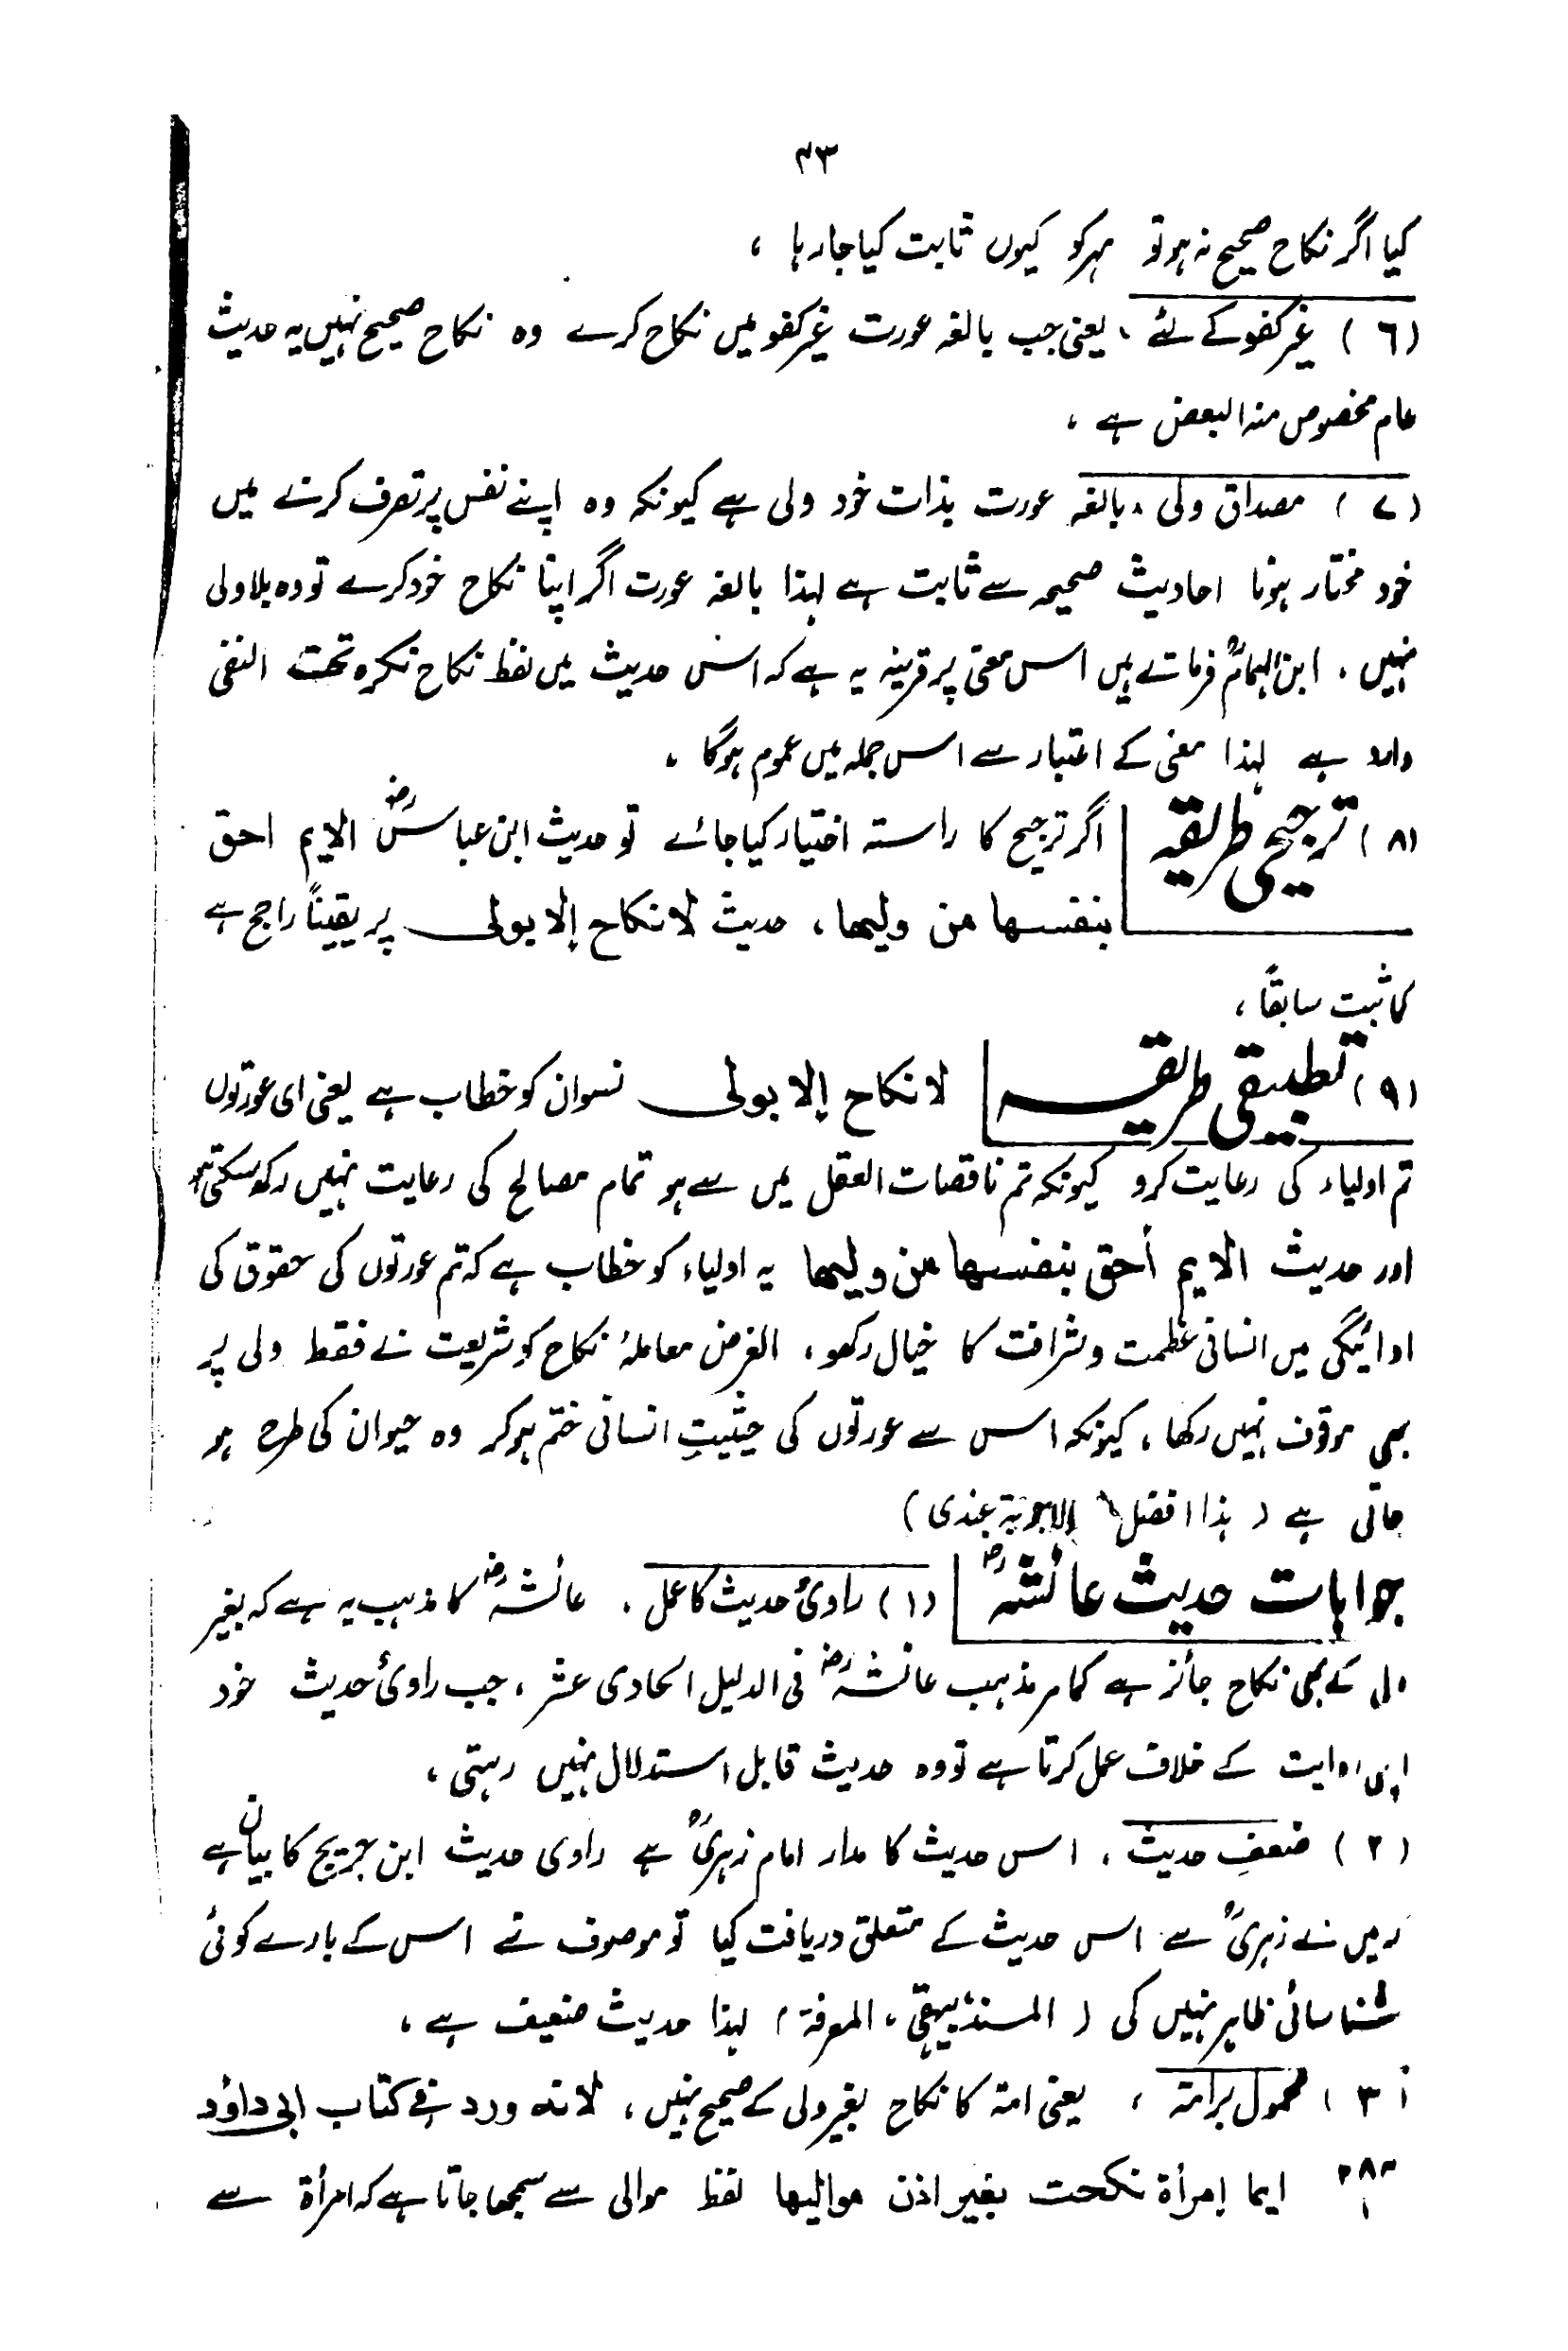 ۴۳
کیا اگر نکاح صحیح نہ ہو تو مہر کو کیوں ثابت کیا جارہا ،
(٦) غیر کفو کے لئے ، یعنی جب بالغہ عورت غیر کفو میں نکاح کرے وہ نکاح صحیح نہیں یہ حدیث
عام مخصوص منہ البعض ہے ،
(۷) مصداق ولی ، بالغہ عورت بذات خود ولی ہے کیونکہ وہ اپنے نفس پر تصرف کرنے میں
خود مختار ہونا احادیث صحیحہ سے ثابت ہے لہذا بالغہ عورت اگر اپنا نکاح خود کرے تو وہ بلا ولی
نہیں ، ابن الہمامؒ فرماتے ہیں اس معنی پر قرینہ یہ ہے کہ اس حدیث میں لفظ نکاح نکرہ تحت النفی
وارد ہے لہذا معنی کے اعتبار سے اس جملہ میں عموم ہوگا ،
(۸) ترجیحی طریقہ اگر ترجیح کا راستہ اختیار کیا جائے تو حدیث ابن عباسؓ الایم احق
بنفسها من وليها ، حدیث لا نكاح إلا بولی پر یقیناً راجح ہے
کما ثبت سابقاً ،
(۹) تطبیقی طریقہ لا نكاح إلا بولی نسوان کو خطاب ہے یعنی ای عورتوں
تم اولیاء کی رعایت کرو کیونکہ تم ناقصات العقل میں سے ہو تمام مصالح کی رعایت نہیں رکھ سکتی ہو
اور حدیث الایم أحق بنفسها من وليها یہ اولیاء کو خطاب ہے کہ تم عورتوں کی حقوق کی
ادائیگی میں انسانی عظمت و شرافت کا خیال رکھو ، الغرض معاملۂ نکاح کو شریعت نے فقط ولی پر
بھی موقوف نہیں رکھا ، کیونکہ اس سے عورتوں کی حیثیتِ انسانی ختم ہوکر وہ حیوان کی طرح ہو
جاتی ہے ( ہذا افضل الاجوبة عندی )
جوابات حدیث عائشہؓ (۱) راویٔ حدیث کا عمل ، عائشہؓ کا مذہب یہ ہے کہ بغیر
ولی کے بھی نکاح جائز ہے کما مر مذہب عائشہؓ فی الدلیل الحادی عشر ، جب راویٔ حدیث خود
اپنی روایت کے خلاف عمل کرتا ہے تو وہ حدیث قابل استدلال نہیں رہتی ،
(۲) ضعفِ حدیث ، اس حدیث کا مدار امام زہریؒ ہے راوی حدیث ابن جریج کا بیان ہے
کہ میں نے زہریؒ سے اس حدیث کے متعلق دریافت کیا تو موصوف نے اس کے بارے کوئی
شناسائی ظاہر نہیں کی ( المسند بیہقی ، المعرفۃ ) لہذا حدیث ضعیف ہے ،
(۳) محمول برامۃ ، یعنی امۃ کا نکاح بغیر ولی کے صحیح نہیں ، لانه ورد فی كتاب ابی داؤد
ایما إمرأة نكحت بغير اذن مواليها لفظ موالی سے سمجھا جاتا ہے کہ امرأۃ سے